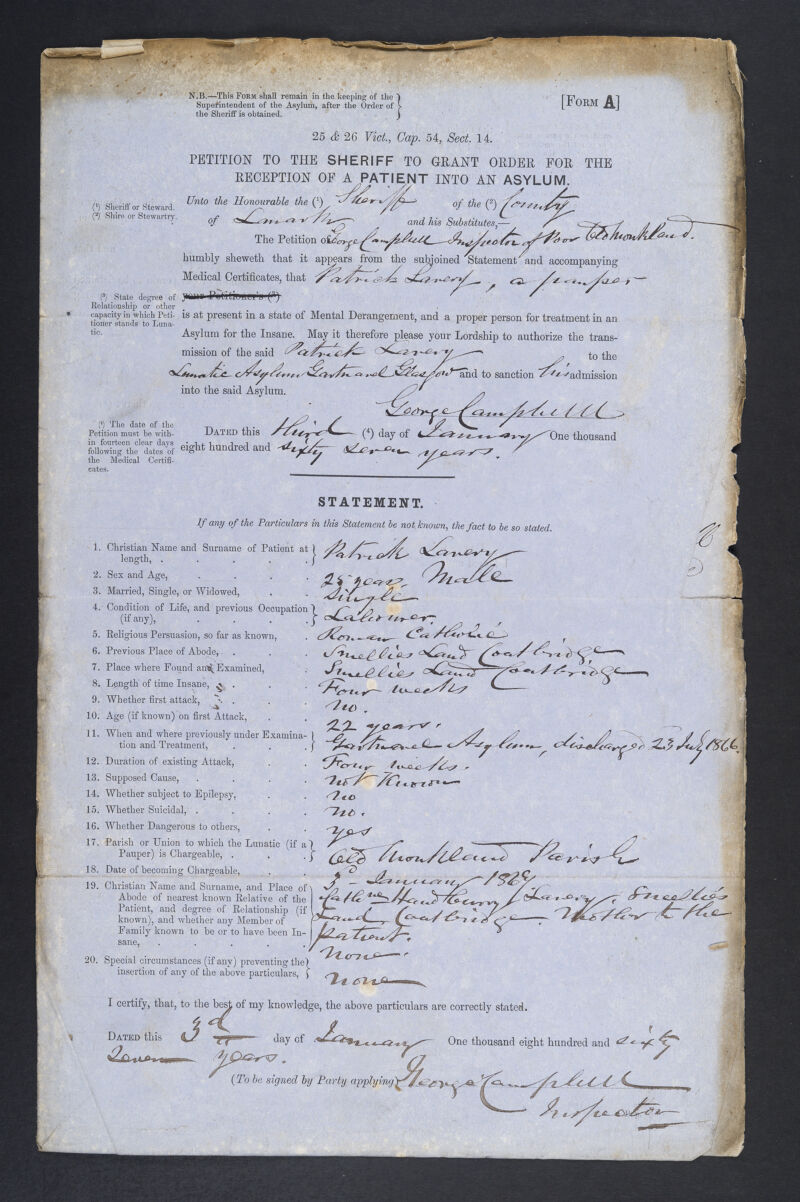 N.B.—This Form shall remain in the keeping of the
Superintendent of the Asylum, after the Order of
the Sheriff is obtained.
[Form A]
25 & 26 Vict., Cap. 54, Sect. 14.
PETITION TO THE SHERIFF TO GRANT ORDER FOR THE
RECEPTION OF A PATIENT INTO AN ASYLUM.
(1) Sheriff or Steward.
(2) Shire or Stewartry.
Unto the Honourable the (1) Sheriff of the (2) County
of Lanark and his Substitutes,—
The Petition of George Campbell Inspector of Poor Old Monkland.
humbly sheweth that it appears from the subjoined Statement and accompanying
Medical Certificates, that Patrick Lavery, a pauper
(3) State degree of
Relationship or other
capacity in which Peti-
tioner stands to Luna-
tic.
your Petitioner's (3)
is at present in a state of Mental Derangement, and a proper person for treatment in an
Asylum for the Insane. May it therefore please your Lordship to authorize the trans-
mission of the said Patrick Lavery to the
Lunatic Asylum Gartnavel Glasgow and to sanction his admission
into the said Asylum.
George Campbell
(4) The date of the
Petition must be with-
in fourteen clear days
following the dates of
the Medical Certifi-
cates.
Dated this third (4) day of January One thousand
eight hundred and sixty seven years.
STATEMENT.
If any of the Particulars in this Statement be not known, the fact to be so stated.
1. Christian Name and Surname of Patient at
length, . Patrick Lavery
2. Sex and Age, 25 years. Male
3. Married, Single, or Widowed, Single
4. Condition of Life, and previous Occupation
(if any), Labourer.
5. Religious Persuasion, so far as known, Roman Catholic
6. Previous Place of Abode, Smellies Land Coatbridge
7. Place where Found and Examined, Smellies Land Coatbridge
8. Length of time Insane, Four weeks
9. Whether first attack, no.
10. Age (if known) on first Attack, 22 years.
11. When and where previously under Examina-
tion and Treatment, Gartnavel Asylum, discharged 23 July 1866.
12. Duration of existing Attack, Four weeks.
13. Supposed Cause, not Known
14. Whether subject to Epilepsy, no
15. Whether Suicidal, no.
16. Whether Dangerous to others, yes
17. Parish or Union to which the Lunatic (if a
Pauper) is Chargeable, Old Monkland Parish
18. Date of becoming Chargeable, 3d January 1867
19. Christian Name and Surname, and Place of
Abode of nearest known Relative of the
Patient, and degree of Relationship (if
known), and whether any Member of
Family known to be or to have been In-
sane,
Lavery. Smellies
Land Coatbridge. Mother to the
patient.
none.
20. Special circumstances (if any) preventing the
insertion of any of the above particulars, none
I certify, that, to the best of my knowledge, the above particulars are correctly stated.
Dated this 3d day of January One thousand eight hundred and sixty
Seven years.
(To be signed by Party applying) George Campbell
Inspector